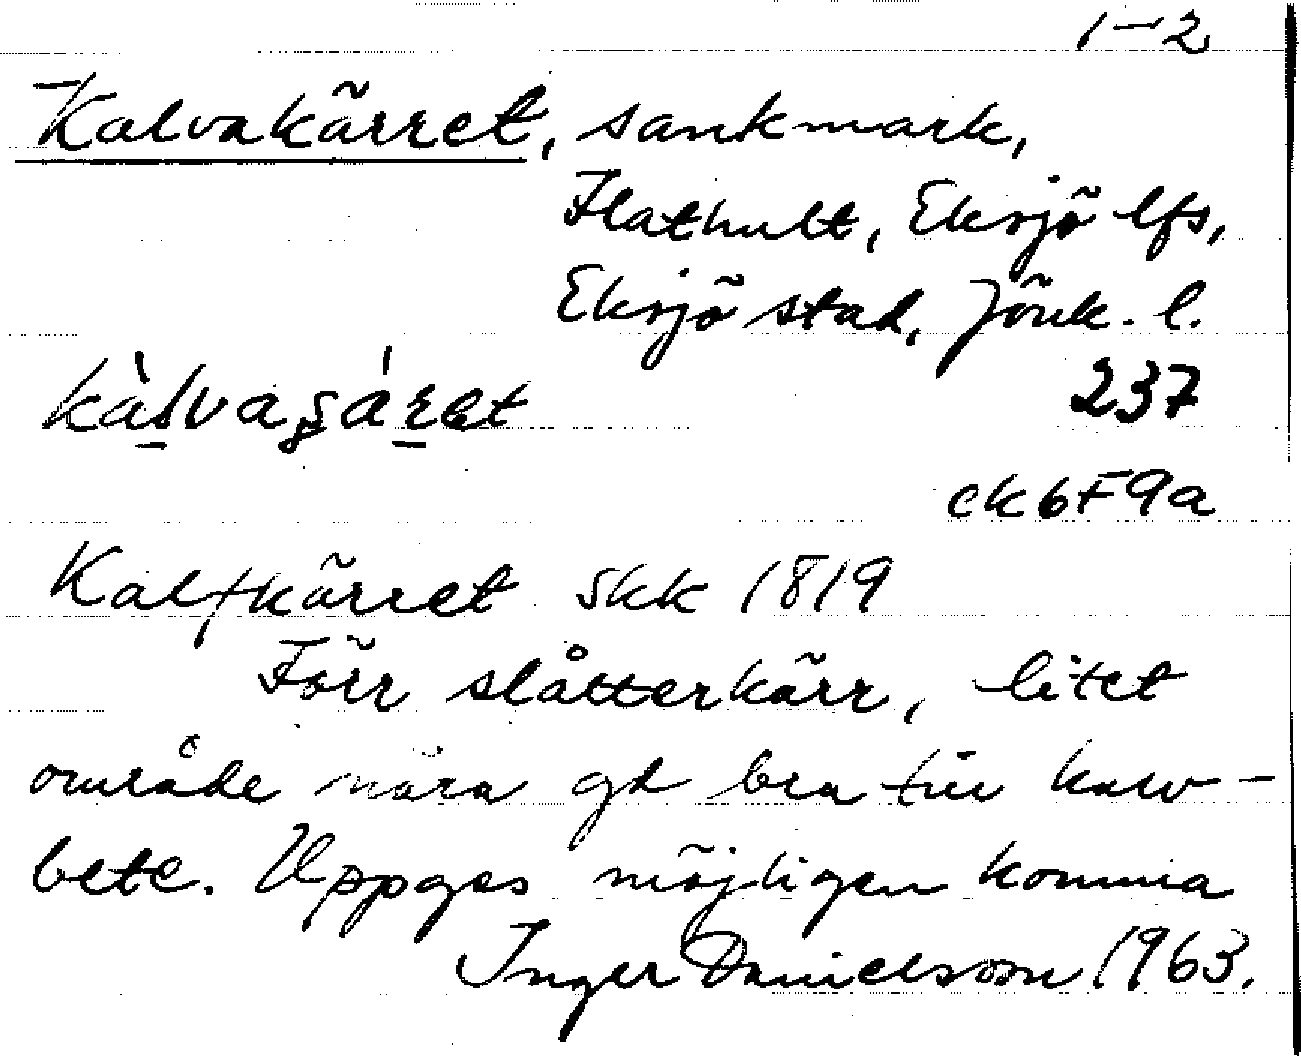 1–2
Kalvakärret, sankmark,
Flathult, Eksjö lfs,
Eksjö stad, Jönk. l.
kàlvaʂáret 237
ek 6F9a
Kalfkärret skk 1819
Förr slåtterkärr, litet
område nära gd bra till kalv-
bete. Uppges möjligen komma
Inger Danielsson 1963.